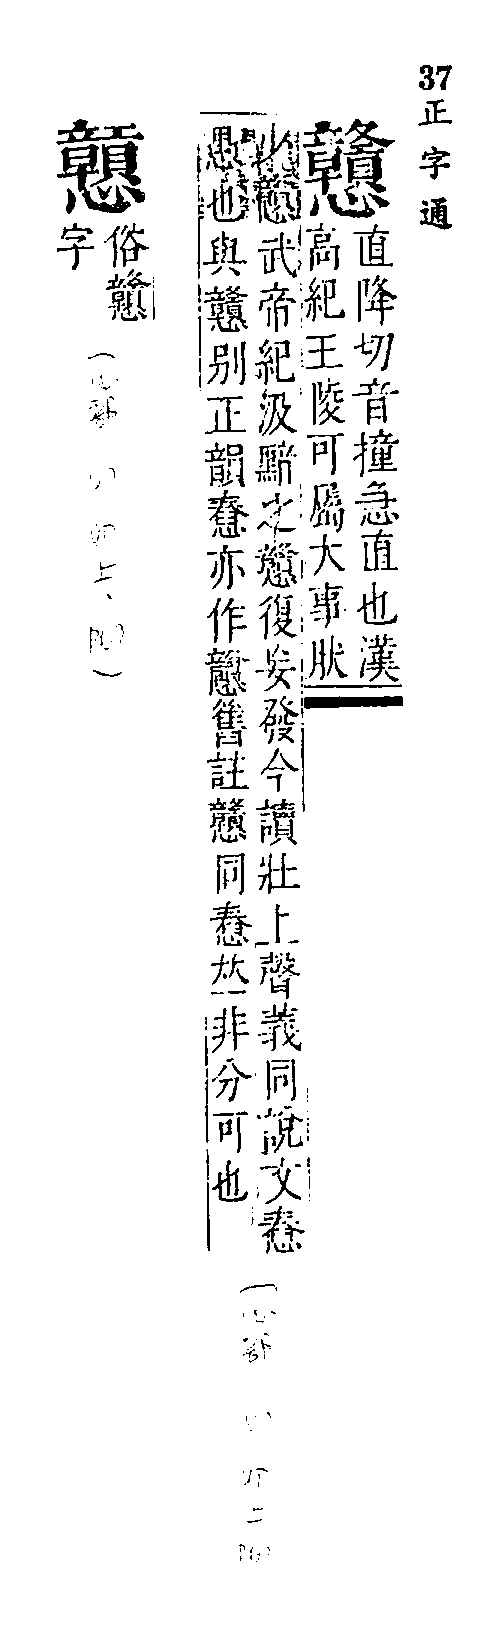 37正字通
戇
直降切音撞急直也漢
高紀王陵可屬大事然
少戇武帝紀汲黯之戇復妄發今讀壯上聲義同說文惷
愚也與戇别正韻惷亦作戇舊註戇同惷𠀤非分可也
俗戇
字